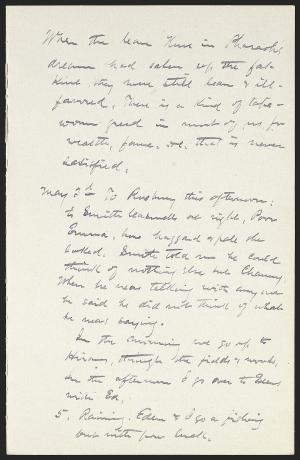 When the lean kine in Pharaoh's
dream had eaten up the fat-
kine, they were still lean & ill-
favored. There is a kind of tape-
worm greed in most of us for
wealth, fame, etc. that is never
satisfied.
May 3d To Roxbury this afternoon;
to Smith Caswells at night. Poor
Emma, how haggard & pale she
looked. Smith told me he could
think of nothing else but Channy.
When he was talking with any one
he said he did not think of what
he was saying.
In the morning we go up to
Hirams, through the fields & woods.
In the afternoon I go over to Edens
with Ed.
5. Raining. Eden & I go a fishing
but with poor luck.